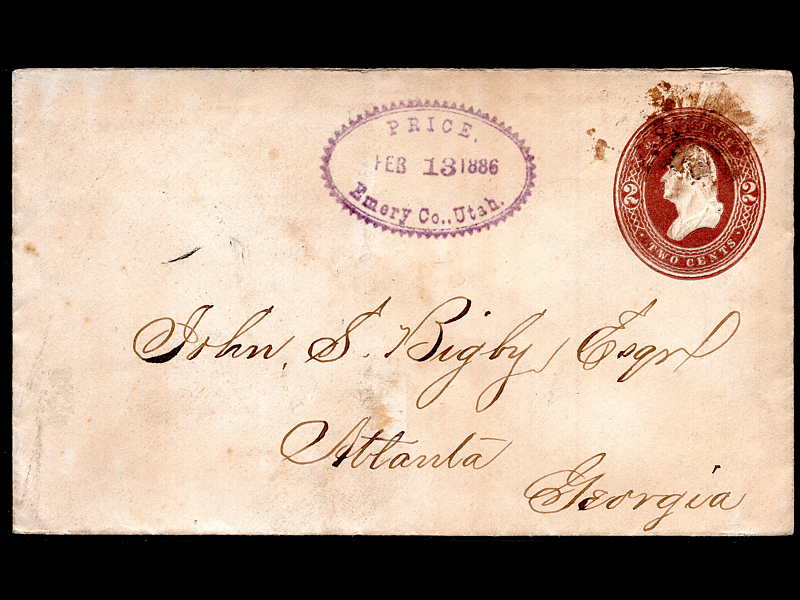 PRICE,
FEB 13 1886
Emery Co., Utah.
2 2
TWO CENTS
John S. Bigby Esqr
Atlanta
Georgia